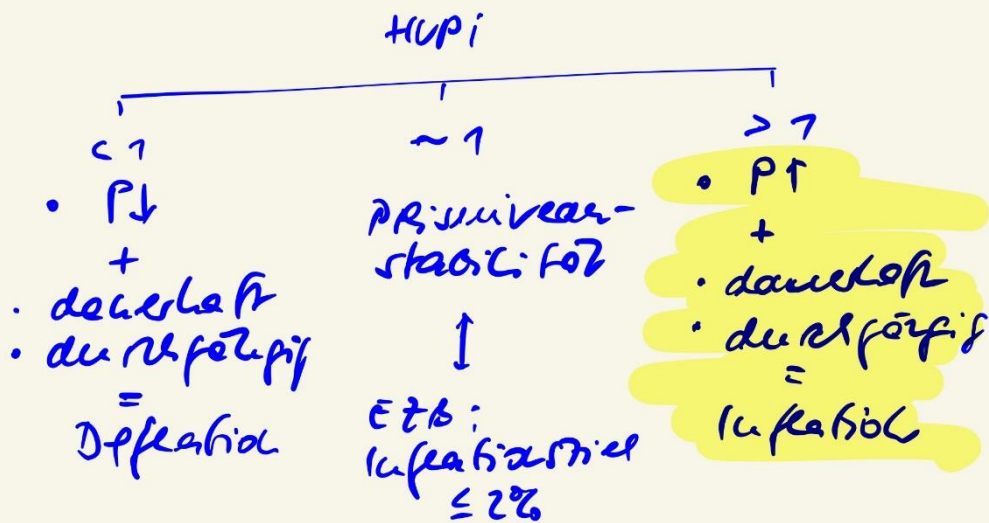 HVPi
< 1
• P↓
+
• dauerhaft
• durchgängig
=
Deflation
~ 1
Preisniveau-
stabilität
↕
EZB:
Inflationsziel
≤ 2%
> 1
• P↑
+
• dauerhaft
• durchgängig
=
Inflation